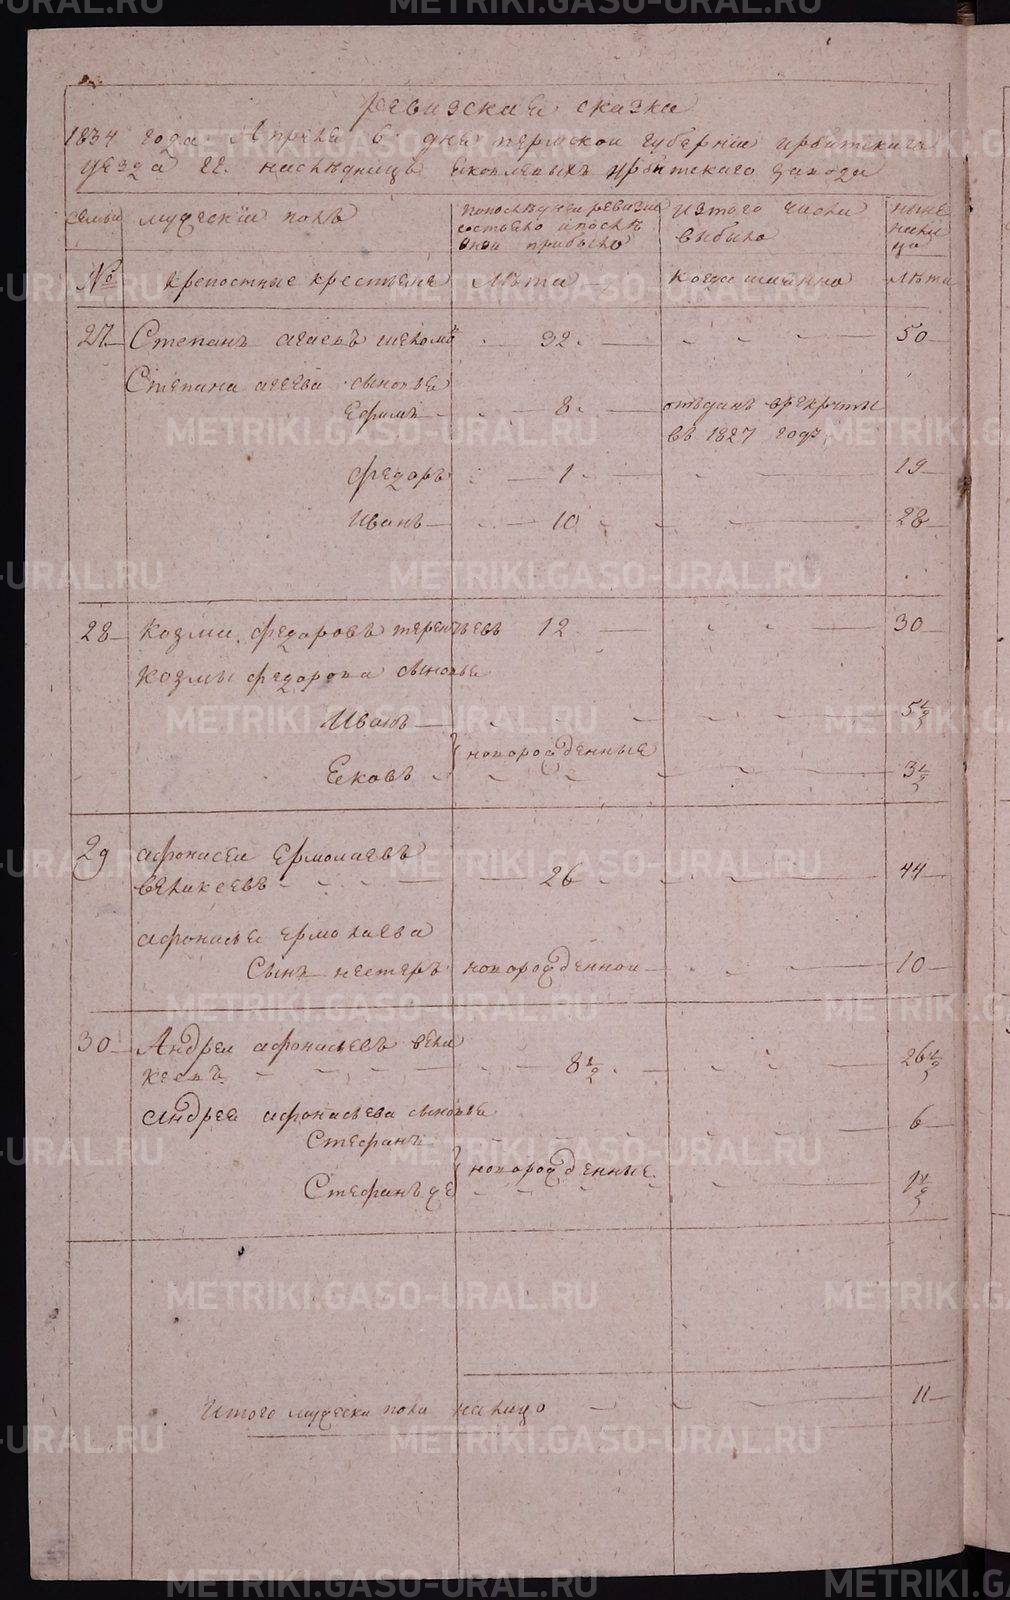 ревизская сказка
1834 года Апреля 6 дня пермской губернии ирбитскаго
уезда гг. наследницъ Яковлевыхъ Ирбитскаго завода
семьи мужескiи полъ
попоследнеи ревизии состояло ипосле онои прибыло
изтого числа выбыло
ныне на лицо
№ Крепостные крестьяне лета Когда имянно лета
27 Степанъ агеевъ 32 50
Степана агеева сыновья
Ефимъ 8 отъданъ врекруты
въ 1827 году
федоръ 1 19
Иванъ 10 28
28 Козма федоровъ терентьевъ 12 30
Козмы федорова сыновья
Иванъ 5 1/2
новорожденные
Яковъ 3 1/2
29 афонасеи ермолаевъ
великеевъ 26 44
афонасья ермолаева
Сынъ нестеръ новорожденнои 10
30 Андреи афонасьевъ вели
кеевъ 8 1/2 26 1/2
андрея афонасьева сыновья 6
Стефанъ
новорожденные
Стефанъ же 1 1/2
Итого мужеска пола налицо 11
METRIKI.GASO-URAL.RU